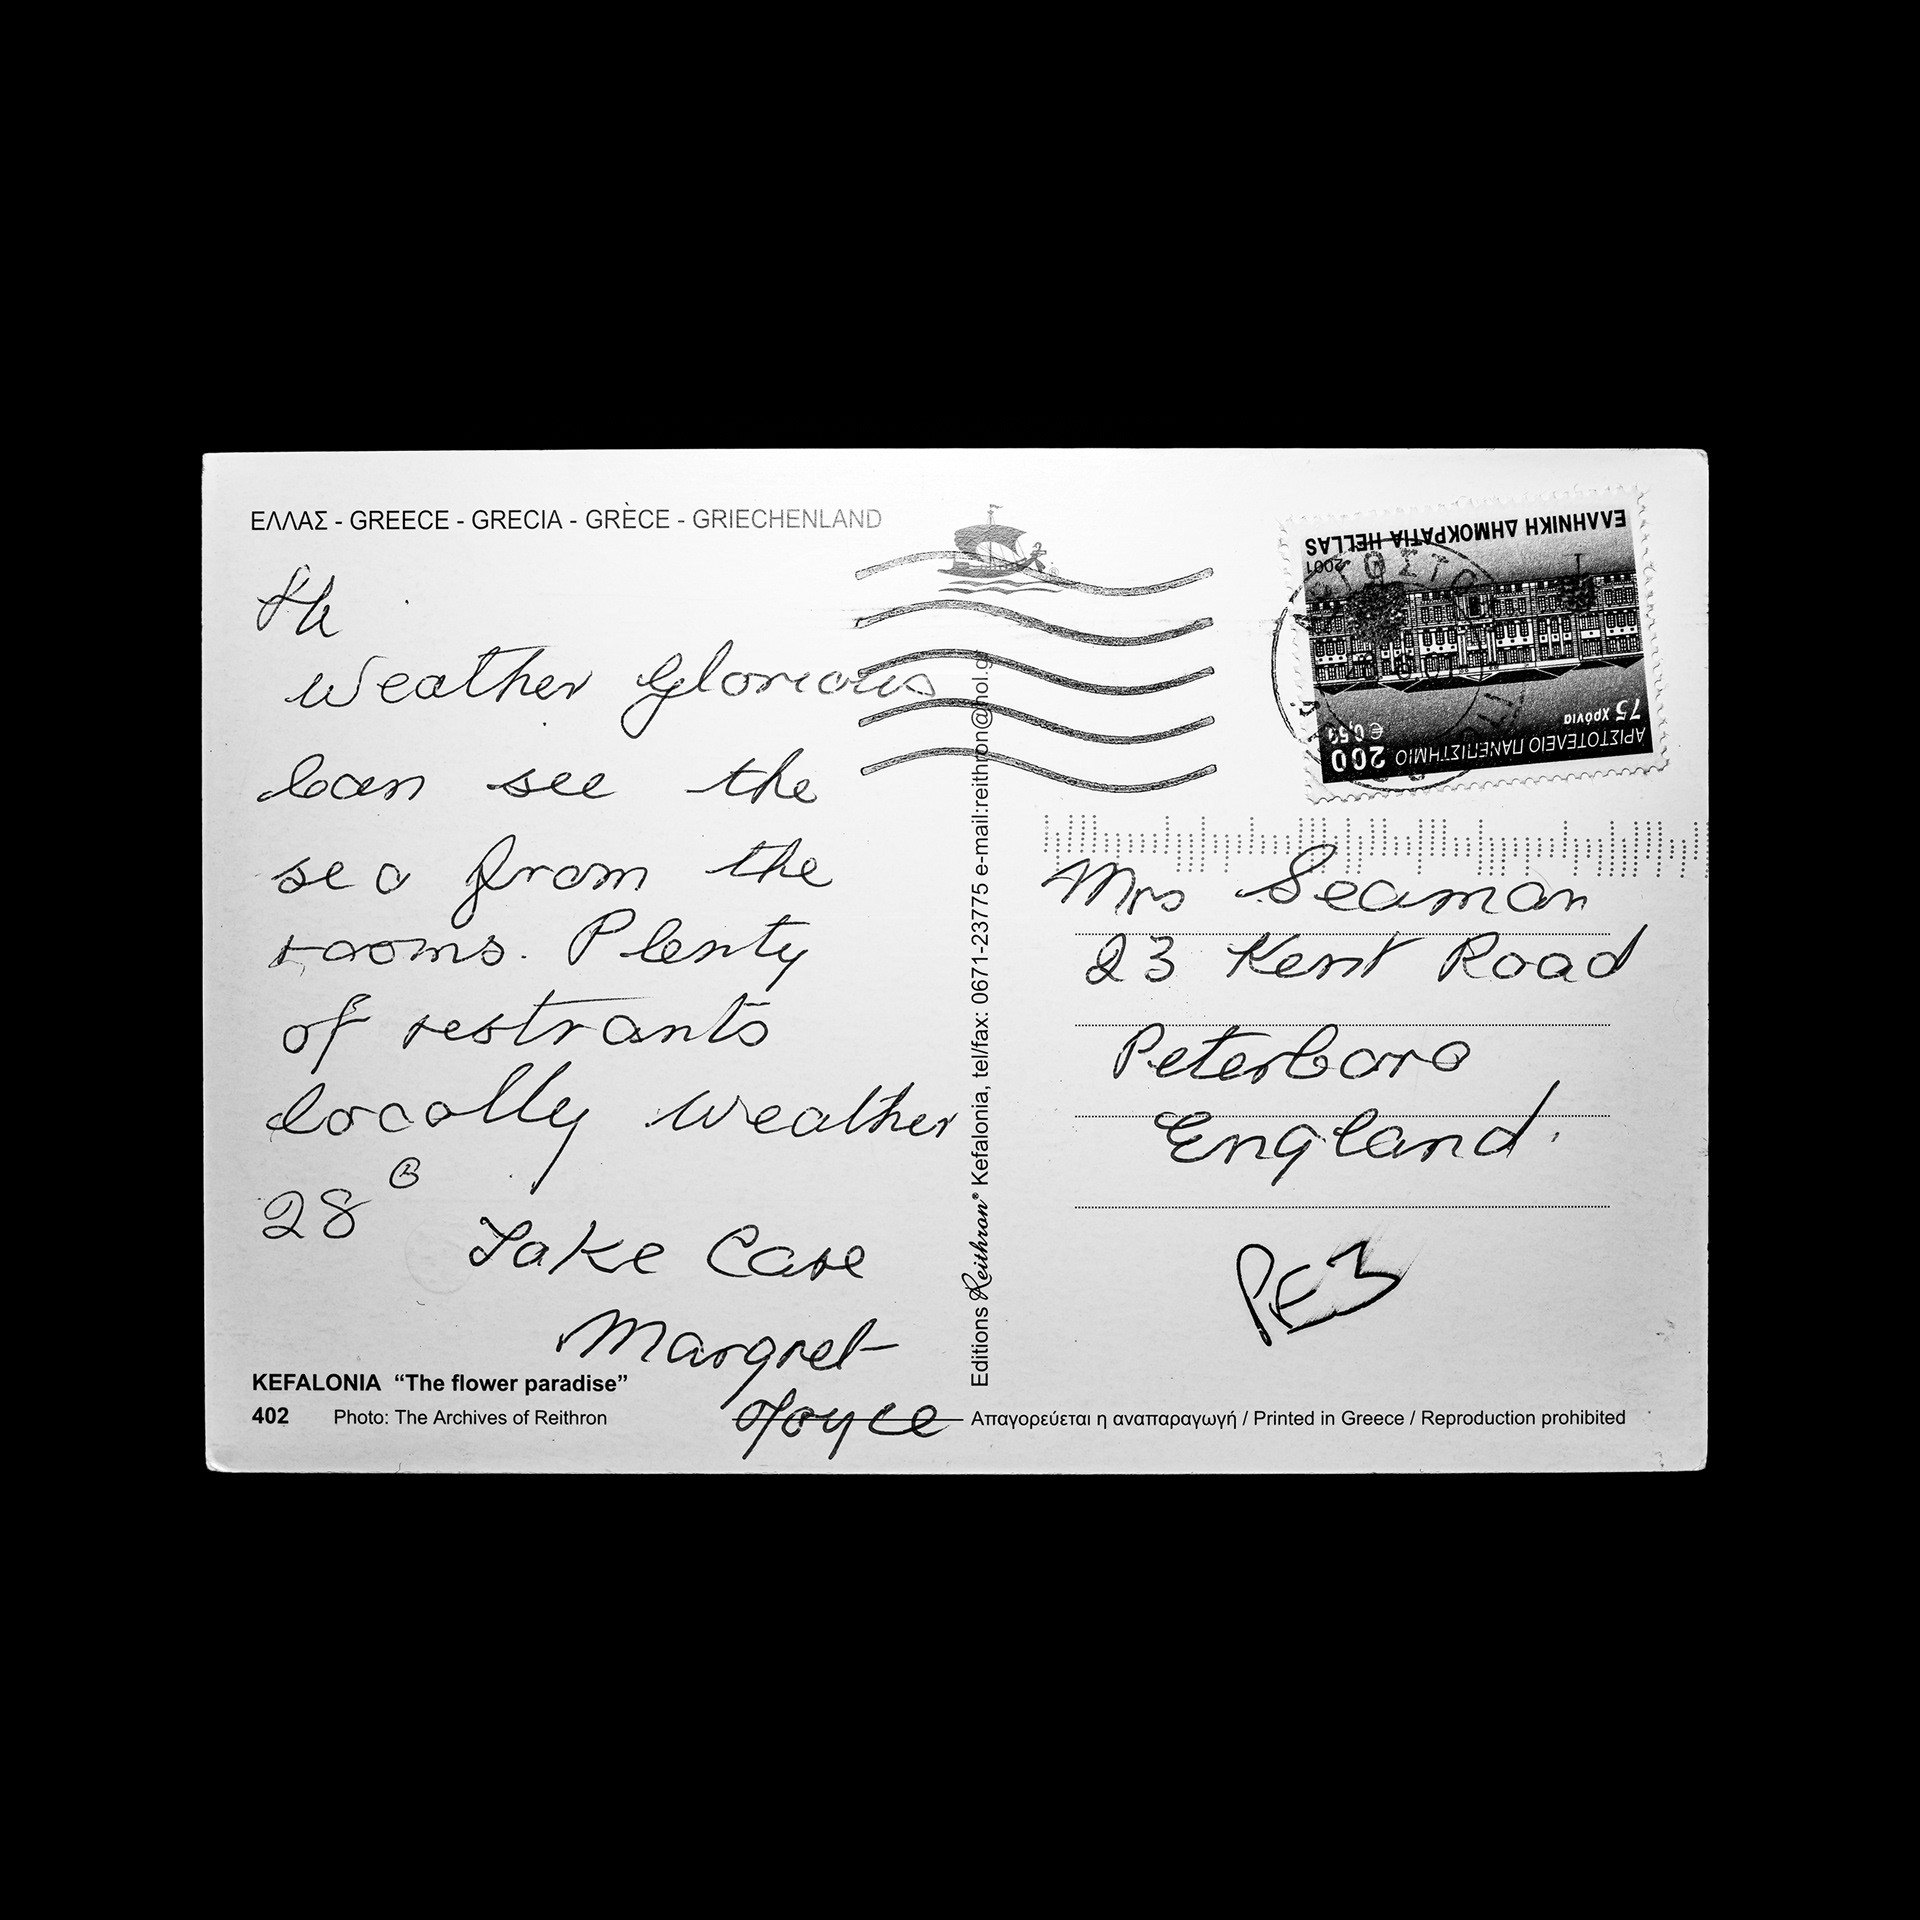 ΕΛΛΑΣ - GREECE - GRECIA - GRÈCE - GRIECHENLAND
Hi
Weather Glorious
Can see the
sea from the
rooms. Plenty
of restrants
locally weather
28°
Take Care
Margret
Joyce
KEFALONIA “The flower paradise”
402 Photo: The Archives of Reithron
Editions Reithron® Kefalonia, tel/fax: 0671-23775 e-mail:reithron@hol.gr
ΕΛΛΗΝΙΚΗ ΔΗΜΟΚΡΑΤΙΑ HELLAS
2001
75 Χρόνια
ΑΡΙΣΤΟΤΕΛΕΙΟ ΠΑΝΕΠΙΣΤΗΜΙΟ
200
Mrs Seaman
23 Kent Road
Peterboro
England.
PE3
Απαγορεύεται η αναπαραγωγή / Printed in Greece / Reproduction prohibited